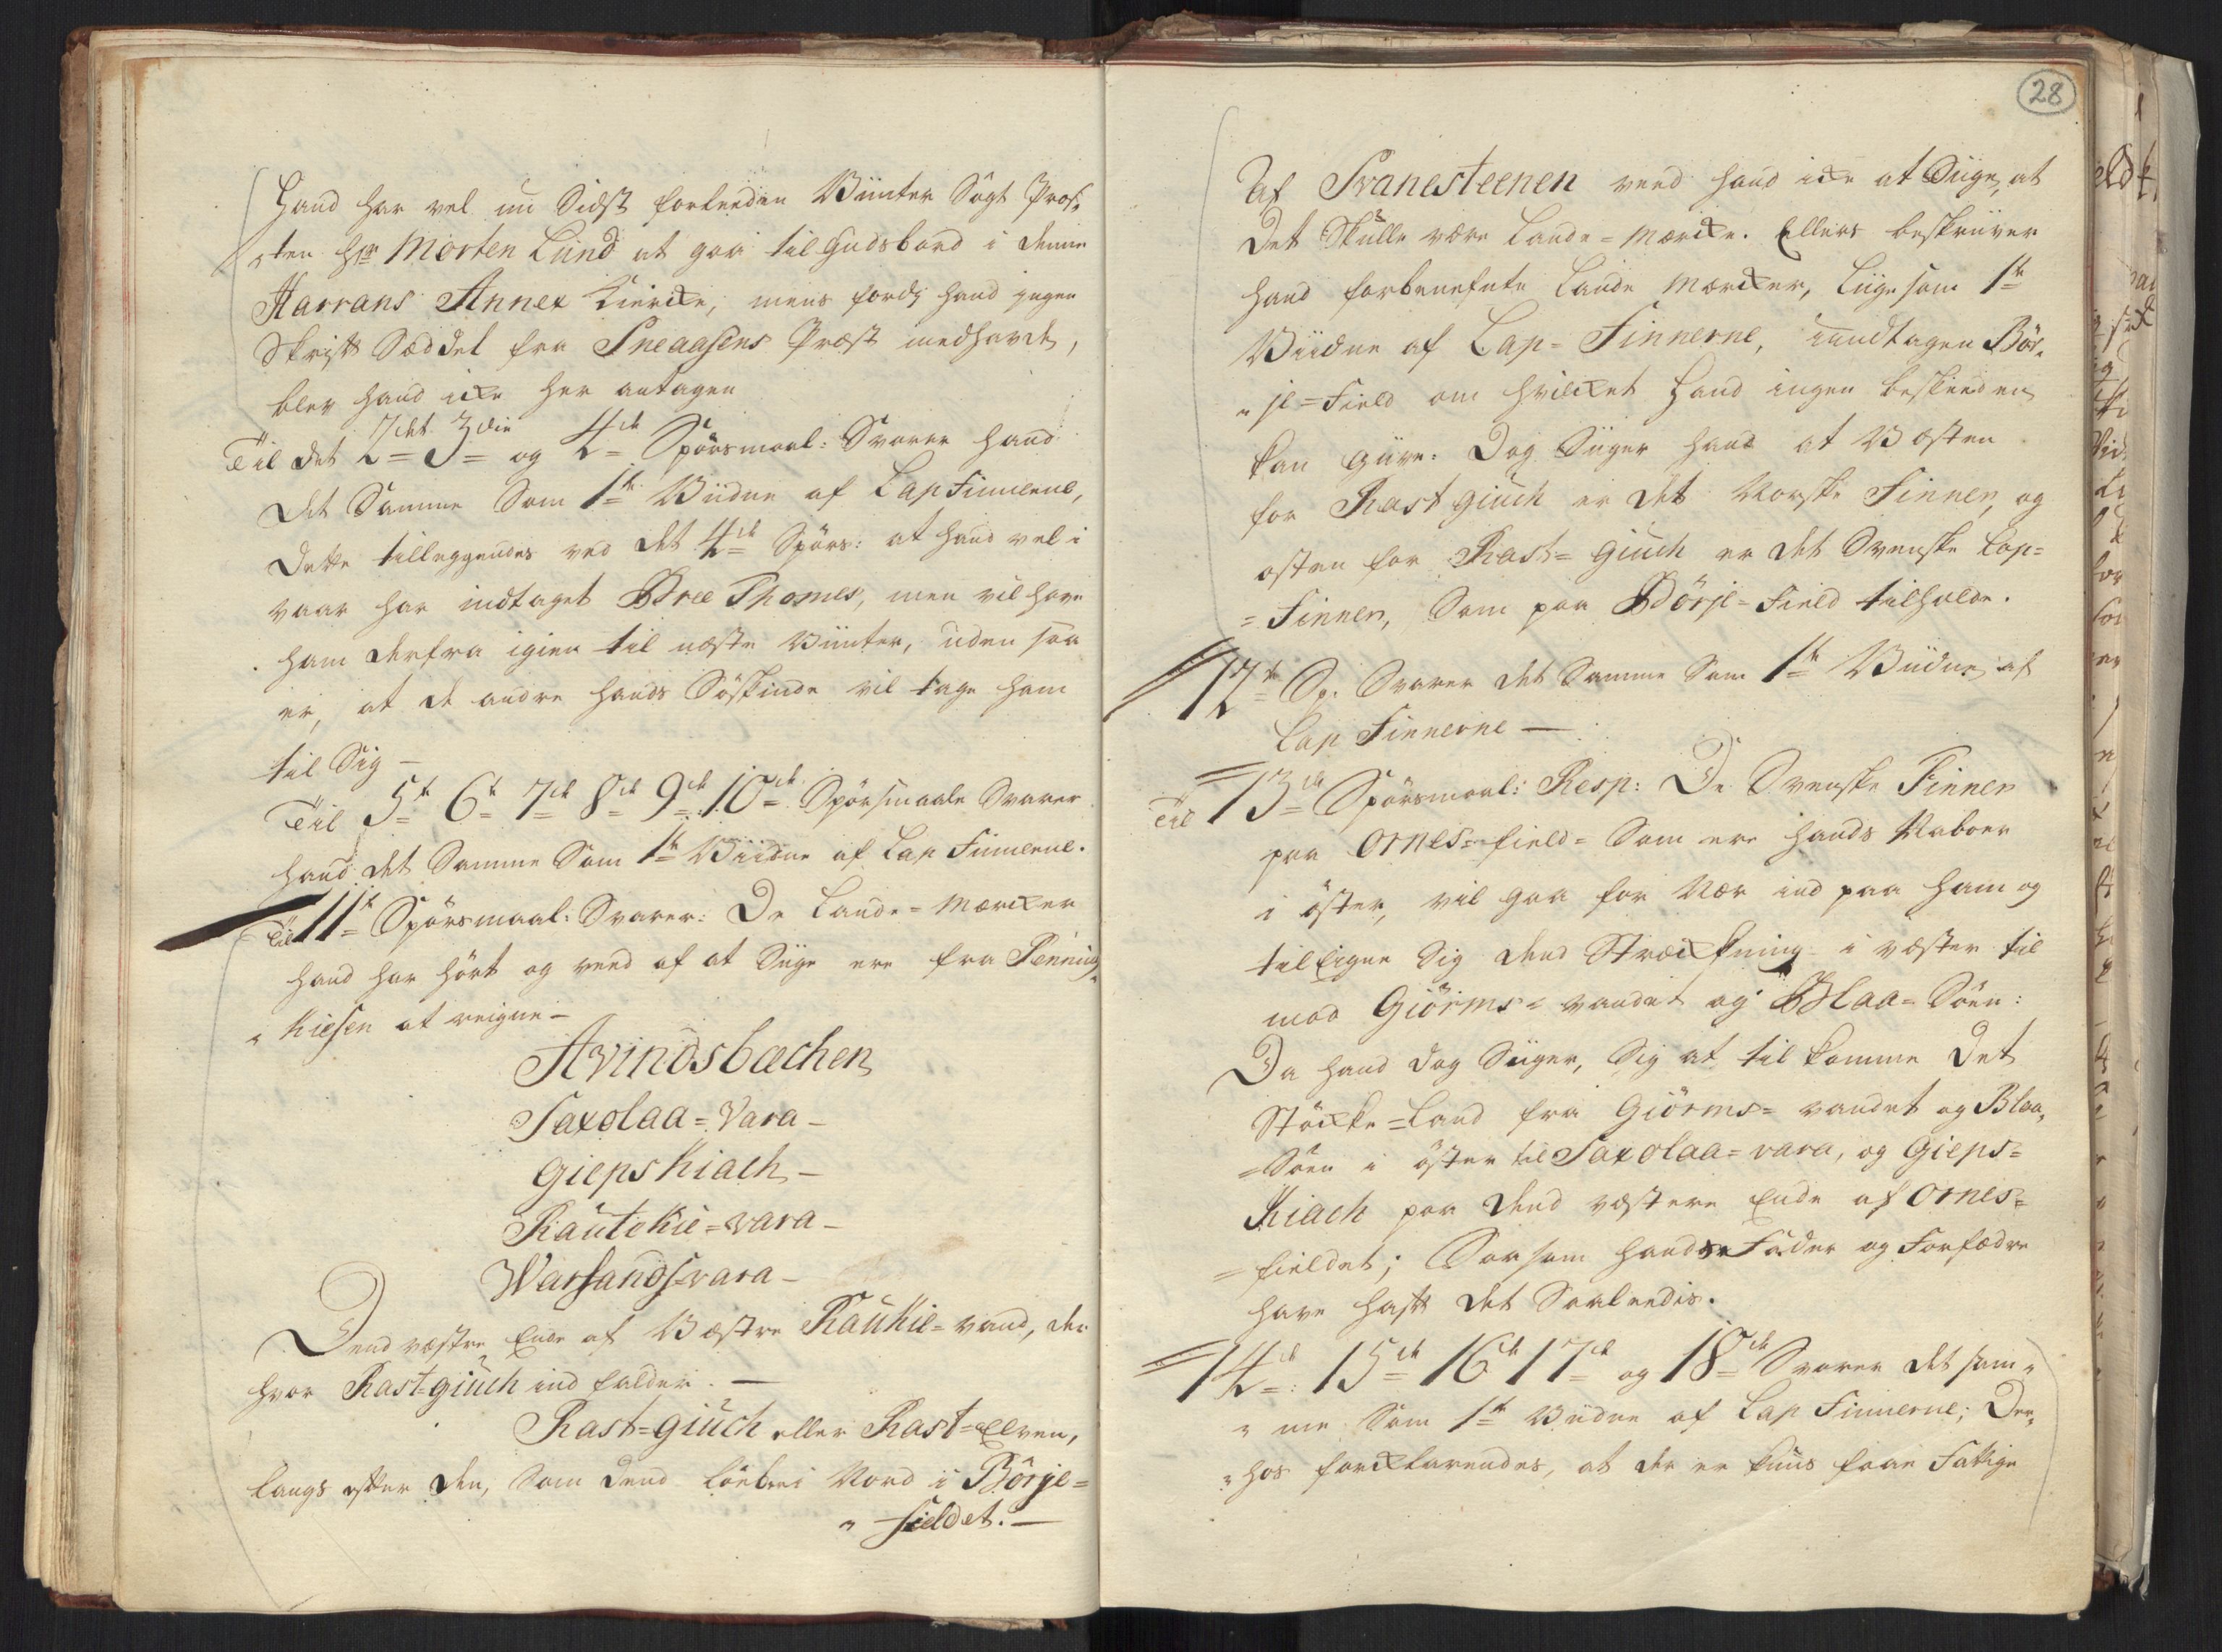 Hand har vel nu Sidst forleeden Viinter Søgt Præs,,
,,ten Hr Morten Lund at gaa til Guds bord i denne
Harrans Annex Kiercke, mens fordj hand jngen
Skriftt Sæddel fra Sneaasens Præst medhavde,
blev hand icke her antagen
Til det 2det 3die og 4de Spörsmaal: Svarer hand
det Samme Som 1te Viidne af Lap Finnerne,
Dette tilleggendes ved det 4de Spörs: at hand vel i
vaar har indtaget Bree Thomes, men vil have
ham derfra igien til næste Viinter, uden saa
er, at de andre hands Södskinde vil tage ham
til Sig –
Til 5te 6te 7de 8de 9de 10de Spörsmaale Svarer
hand det Samme Som 1te Viidne af Lap Finnerne.
Til 11te Spörsmaal: Svarer: De Lande-Mercker
hand har hört og veed af at Siige ere fra Pennings,,
,,Kiesen at reigne –
Avindsbæchen
Saxolaa=Vara –
Giepskiach –
Rautekie=vara –
Warfands=vara –
Dend vestre Ende af Vestre Raukie=vand, der
hvor Rast=giuch ind falder. —
Rast=giuch eller Rast=Elven,
langs efter den, Som dend löber i Nord i Börje=
,,fieldet. —
28
Af Svanesteenen veed hand icke at Siige, at
det Skulle være Lande=Mercke. Ellers beskriiver
hand forbenefnte Lande Mercker, Liigesom 1te
Viidne af Lap=Finnerne, undtagen Bör,,
,,je=Field om hvilcket hand ingen beskeeden
kan giive. Dog Siiger hand at Vesten
for Rast giuch er det Norske Finner, og
östen for Rast=giuch er det Svenske Lap=
=Finner, Som paa Börje=Field tilholde.
12te Sp. Svarer det Samme Som 1te Viidne af
Lap Finnerne —
Til 13de Spörsmaal: Resp: De Svenske Finner
paa Ornes=field= Som ere hands Naboer
i öster, vil gaa for Nær ind paa ham og
tilEigne Sig dend Streckning i væster til
mod Giörms=vandet og Blaa=Söen:
Da hand dog Siiger, Sig at til komme det
Stöcke=Land fra Giörms=vandet og Blaa,,
=Söen i öster til Saxolaa=vara, og Gieps=
Kiach paa dend vestere Ende af Ornes=
=fieldet; Saasom hands Fader og Forfædre
have haft det Saaleedis.
14de: 15de 16de 17de og 18de Svarer det sam,,
,,me Som 1te Viidne af Lap Finnerne; Der,,
,,hos forcklarendes, at der er kuns faae Fattige